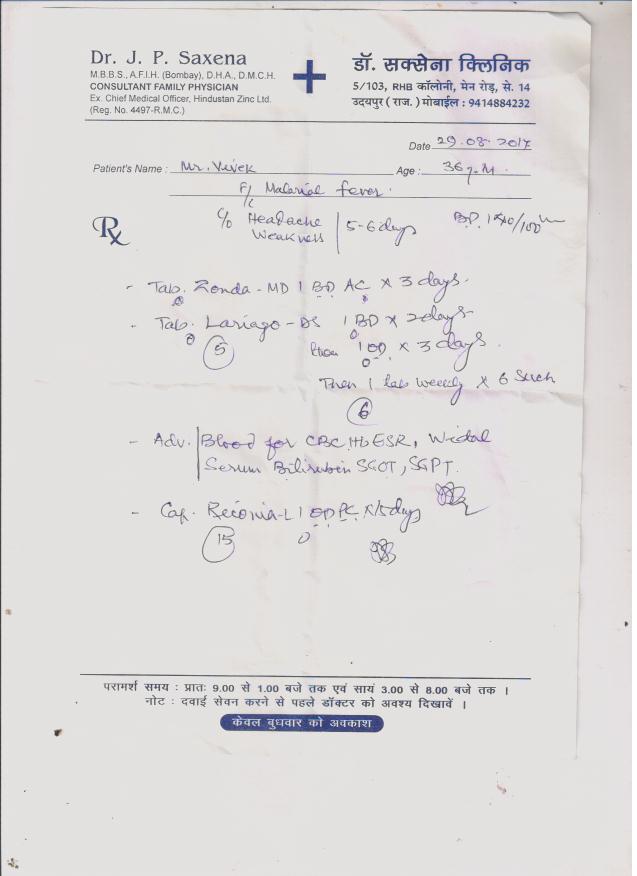 Dr. J. P. Saxena
M.B.B.S., A.F.I.H. (Bombay), D.H.A., D.M.C.H.
CONSULTANT FAMILY PHYSICIAN
Ex. Chief Medical Officer, Hindustan Zinc Ltd.
(Reg. No. 4497-R.M.C.)
डॉ. सक्सेना क्लिनिक
5/103, RHB कॉलोनी, मेन रोड़, से. 14
उदयपुर ( राज. ) मोबाईल : 9414884232
Date 29.08.2017
Patient's Name : Mr. Vivek Age : 36 y. M.
F/c Malarial fever.
Rx
c/o Headache Weakness 5-6 days
BP
- Tab. Zonda-MD 1 BD AC x 3 days.
- Tab. Lariago-DS 1 BD x 2 days
5 then 1 OD x 3 days.
Then 1 tab weekly x 6 such
6
- Adv. Blood for CBC Hb ESR, Widal
Serum Bilirubin SGOT, SGPT.
- Cap. 1 OD PC x 15 days
15
परामर्श समय : प्रातः 9.00 से 1.00 बजे तक एवं सायं 3.00 से 8.00 बजे तक ।
नोट : दवाई सेवन करने से पहले डॉक्टर को अवश्य दिखावें ।
केवल बुधवार को अवकाश